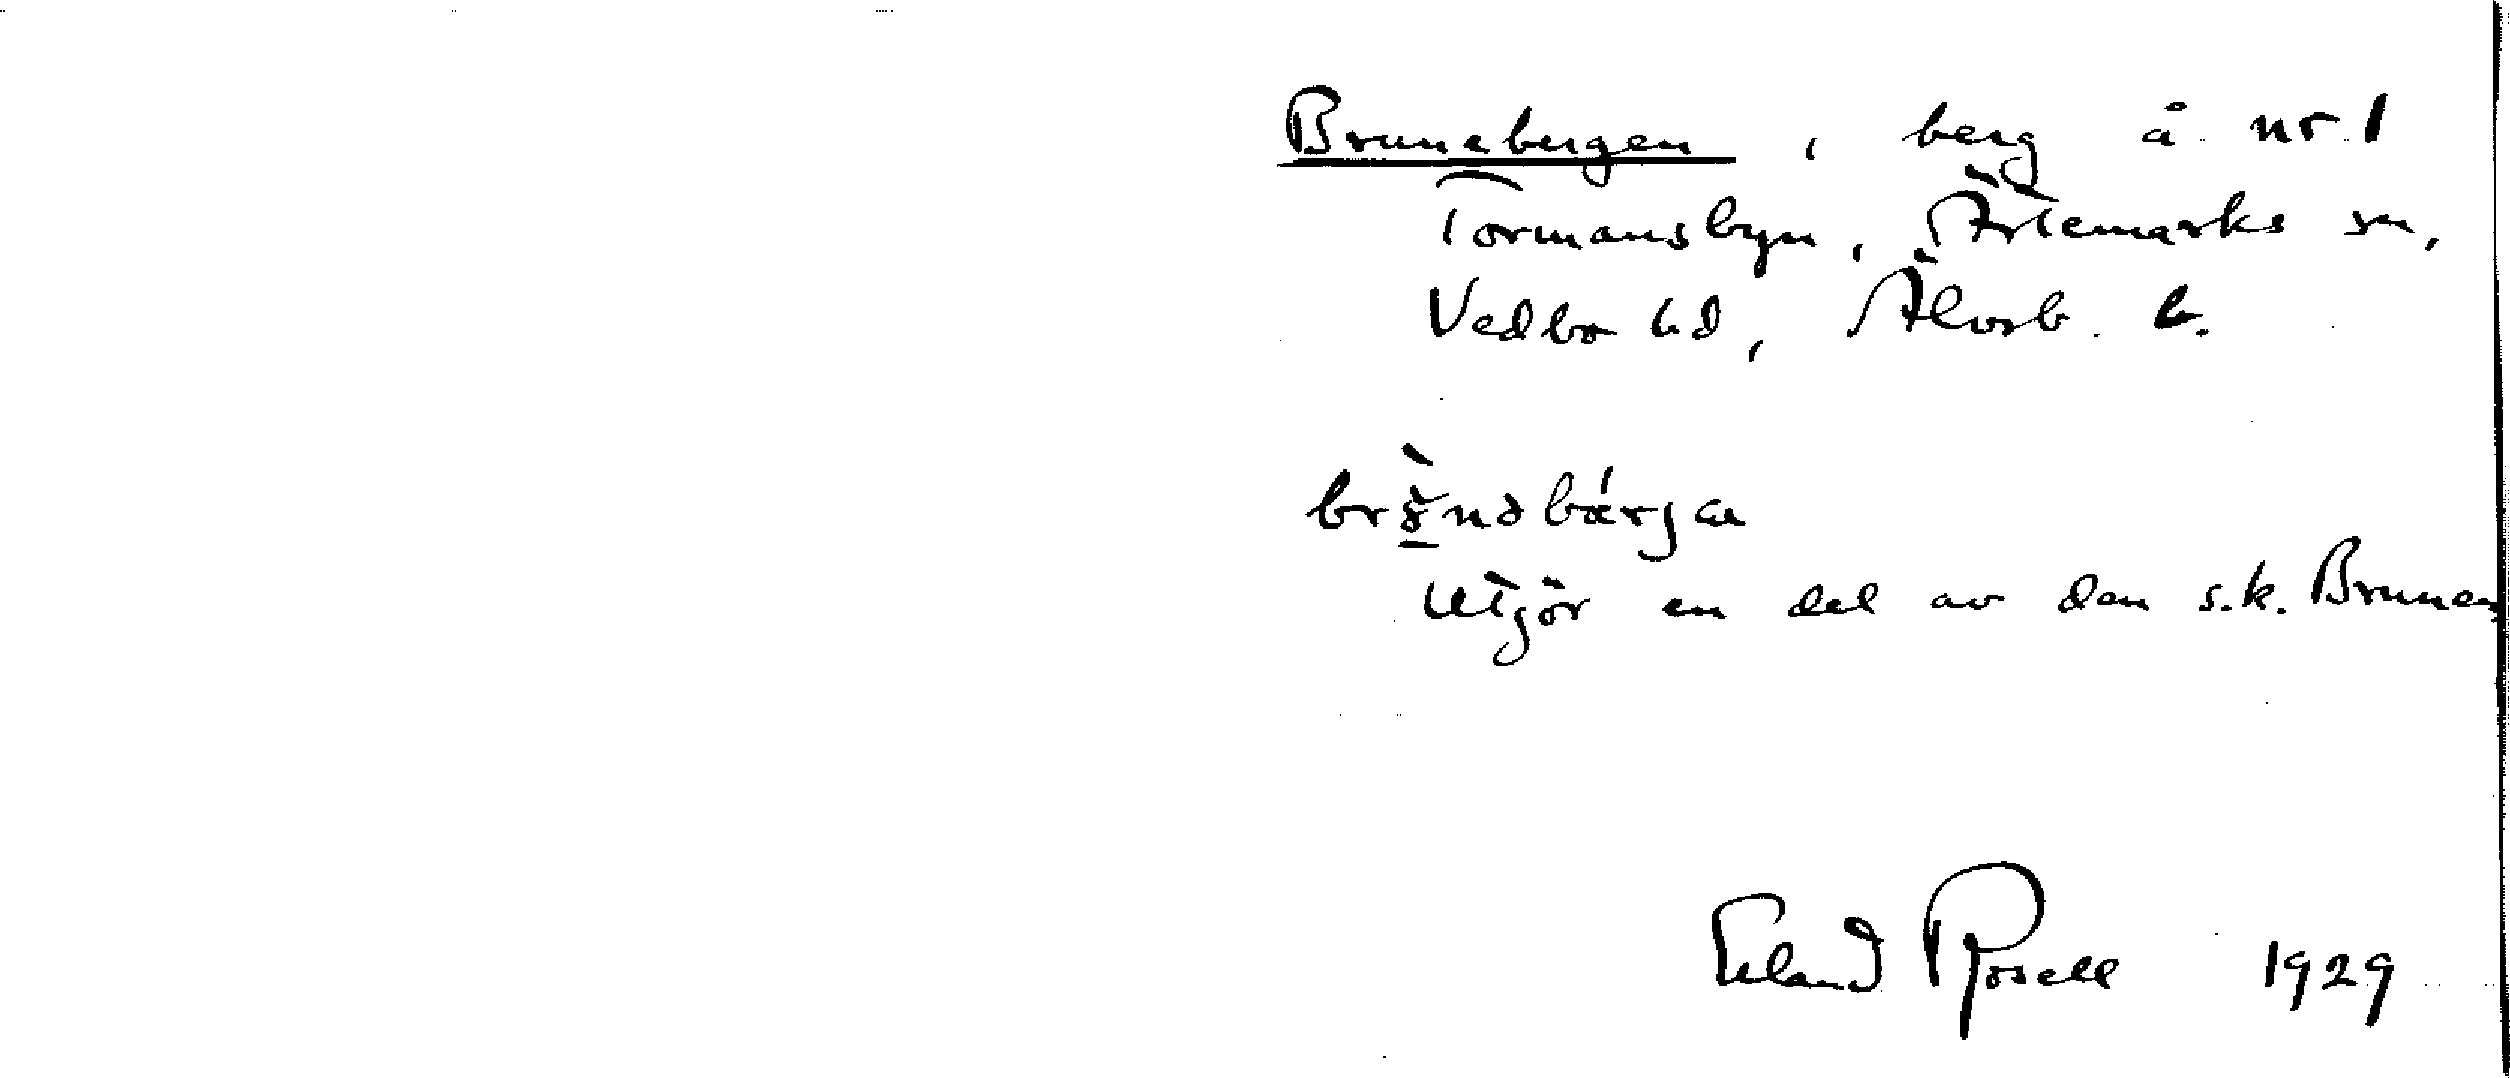 Brunebergen, berg å nr 1
Tormansbyn, Ärtemarks sn,
Vedbo hd, Älvsb. l.
utgör en del av den s.k. Brunen
Erland Rosell 1929